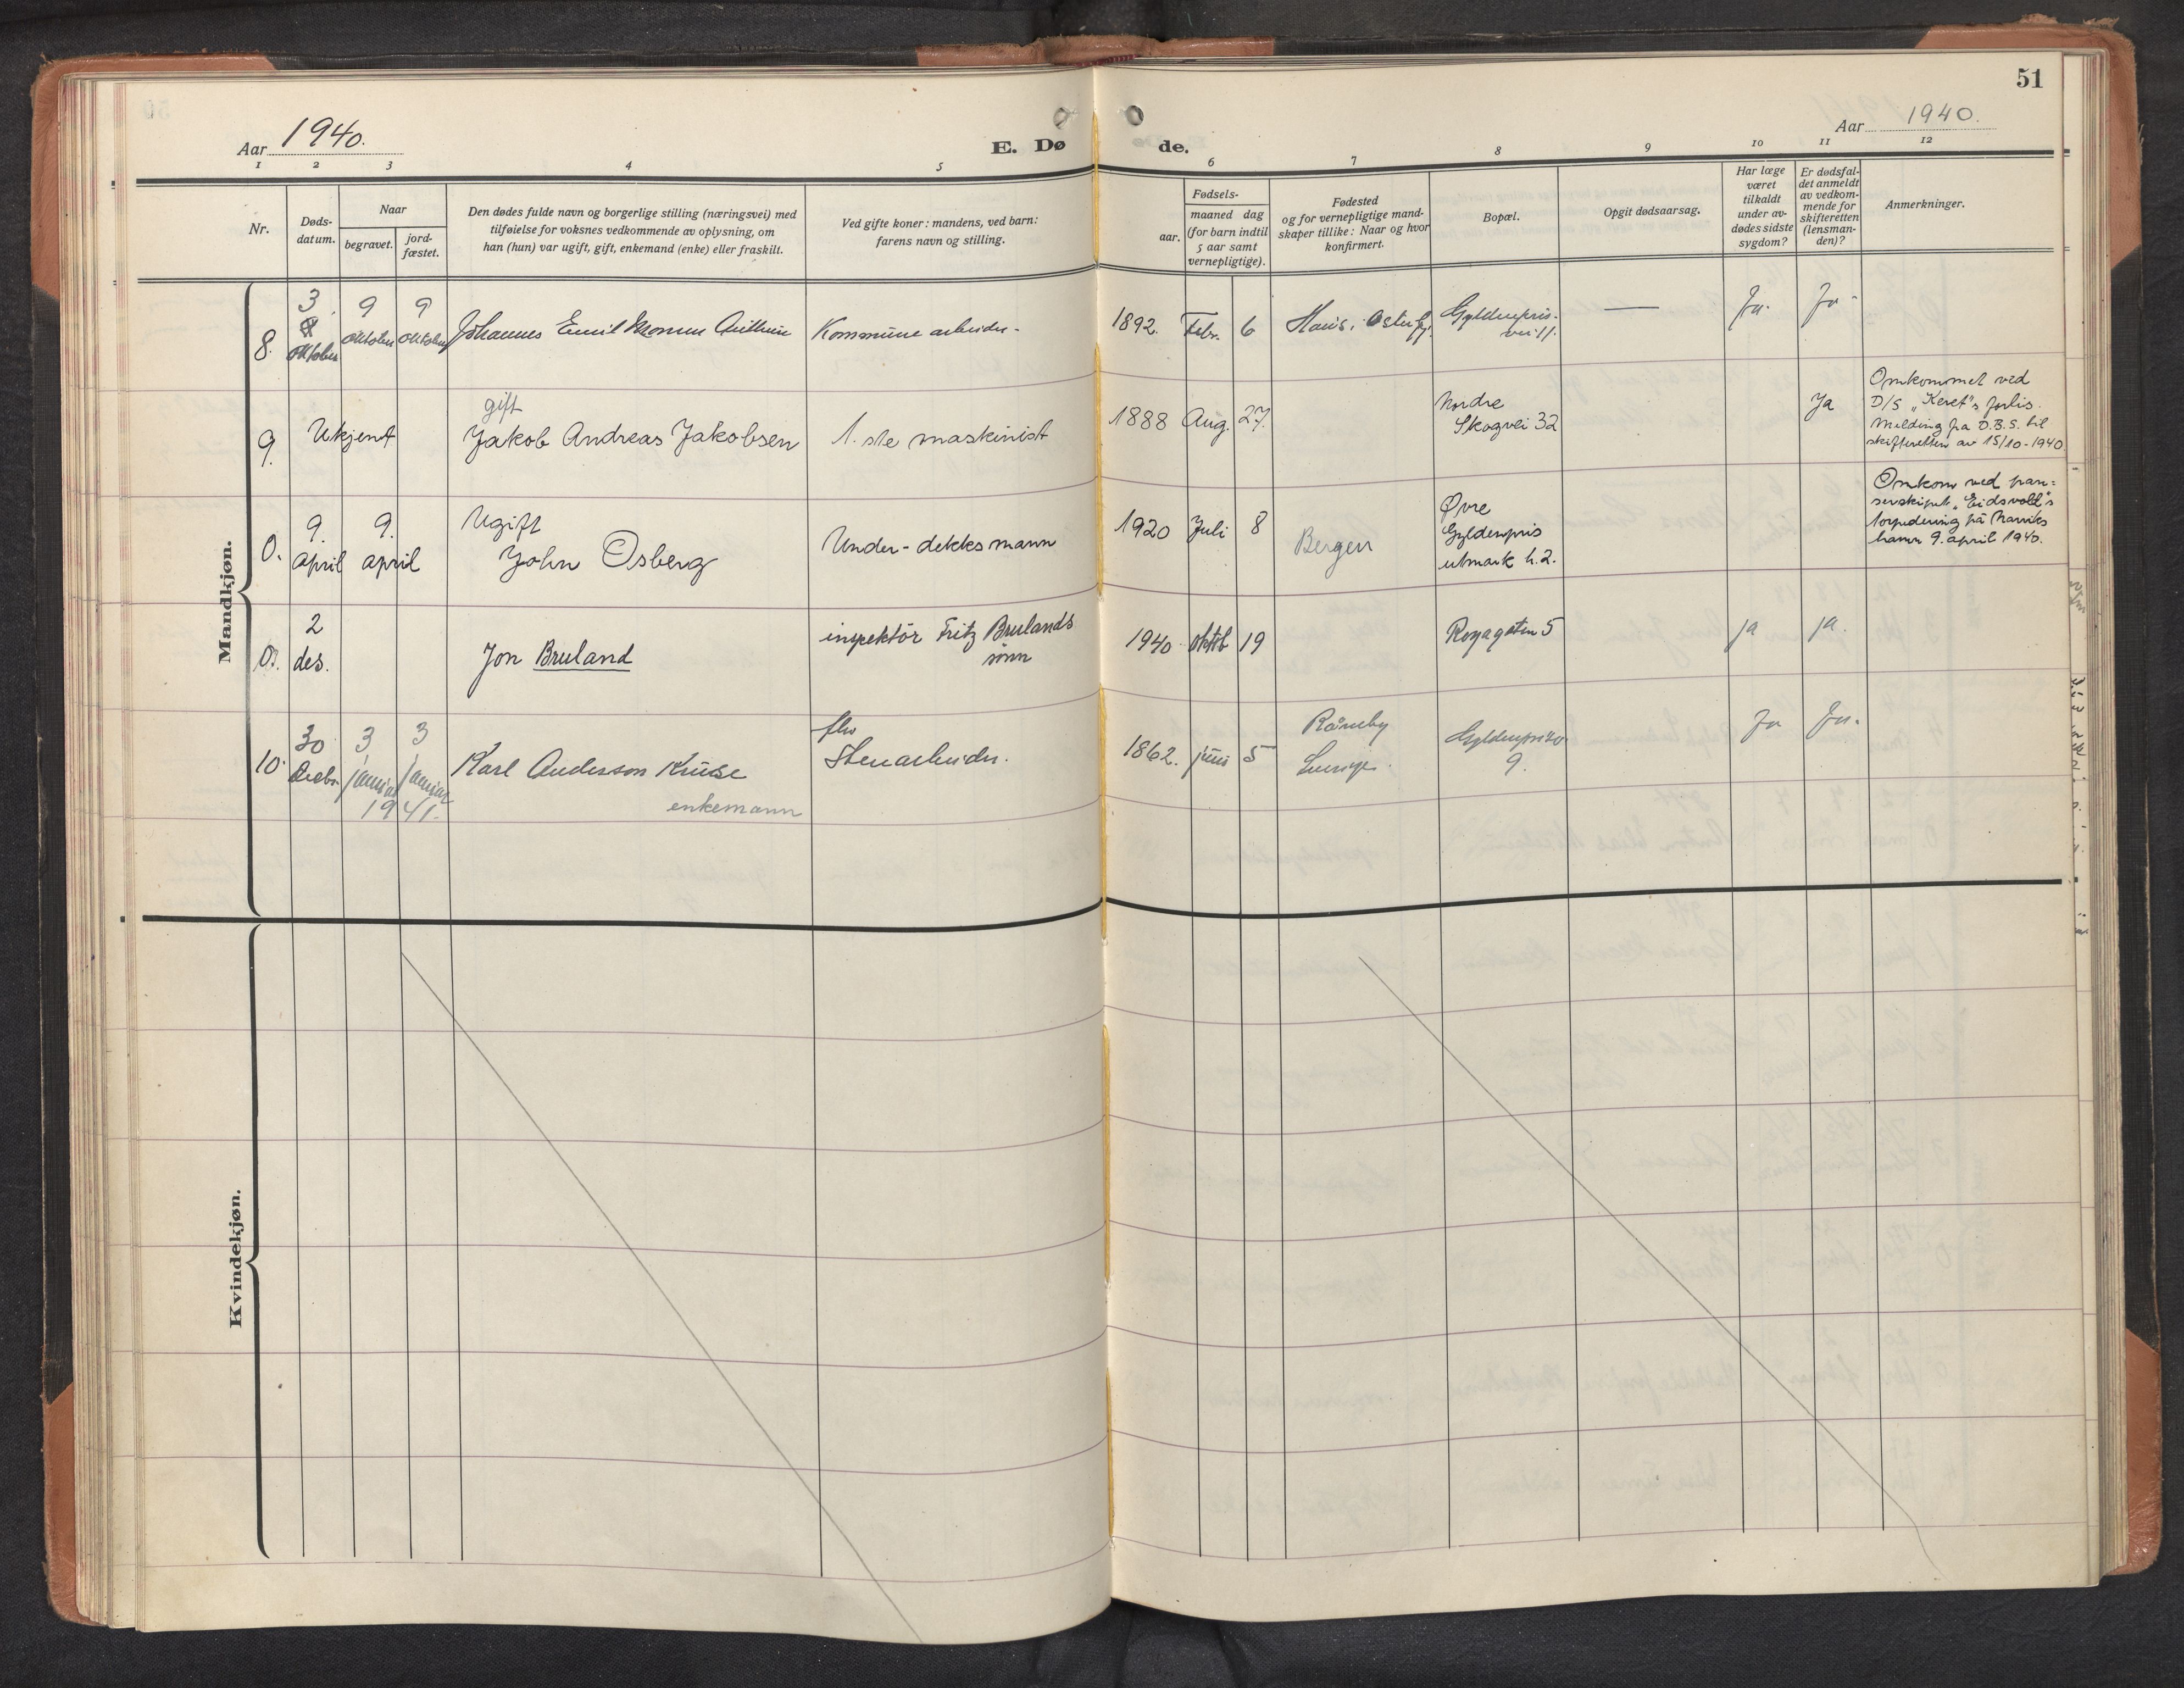 51
Aar 1940.
E. Døde.
Aar 1940.
1 2 3 4 5 6 7 8 9 10 11 12
Nr.
Døds-
datum.
Naar
begravet.
jord-
fæstet.
Den dødes fulde navn og borgerlige stilling (næringsvei) med
tilføielse for voksnes vedkommende av oplysning, om
han (hun) var ugift, gift, enkemand (enke) eller fraskilt.
Ved gifte koner: mandens, ved barn:
farens navn og stilling.
Fødsels-
aar.
maaned dag
(for barn indtil
5 aar samt
vernepligtige).
Fødested
og for vernepligtige mand-
skaper tillike: Naar og hvor
konfirmert.
Bopæl.
Opgit dødsaarsag.
Har læge
været
tilkaldt
under av-
dødes sidste
sygdom?
Er dødsfal-
det anmeldt
av vedkom-
mende for
skifteretten
(lensman-
den)?
Anmerkninger.
Mandkjøn.
8.
3
oktober
9
oktober
9
oktober
Johannes Emil
Kommune arbeider.
1892. Febr. 6
Haus, Osterfj.
Gyldenpris-
vei 11.
—
Ja.
Ja -
9.
Ukjent
gift
Jakob Andreas Jakobsen
1. ste maskinist
1888 Aug. 27.
Nordre
Skogvei 32
Ja
Omkommet ved
D/S „Keret"s forlis.
Melding fra D.B.S. til
skifteretten av 15/10-1940.
0.
9.
april
9.
april
Ugift
John Osberg
Under-dekksmann
1920 Juli 8
Bergen
Øvre
Gyldenpris
utmark h.2.
Omkom ved pan=
serskipet „Eidsvold"s
torpedering på Narviks
havn 9. april 1940.
0.
2
des.
Jon Bruland
inspektör Fritz Brulands
sönn
1940 oktob 19
Rosagaten 5
ja
ja.
10.
30
Decbr.
3
januar
3
januar
1941.
Karl Anderson Kruse
enkemann
fhv
Stenarbeider.
1862. juni 5
Råneby
Sverige.
Gyldenprisv.
9.
Ja
Ja.
Kvindekjøn.